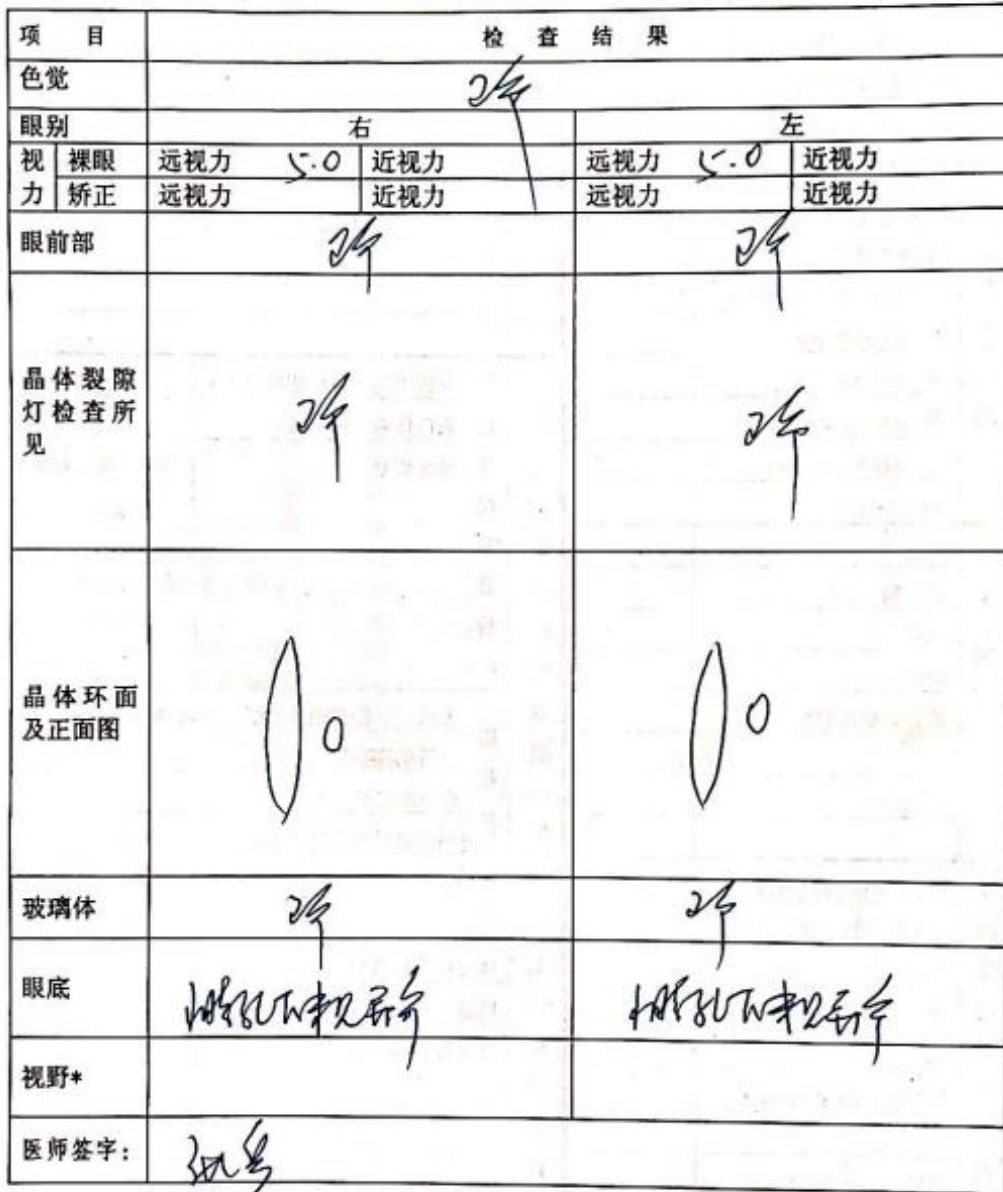 项 目 检 查 结 果
色觉 正常
眼别 右 左
视力 裸眼 远视力 5.0 近视力 远视力 5.0 近视力
矫正 远视力 近视力 远视力 近视力
眼前部 正常 正常
晶体裂隙
灯检查所
见
正常 正常
晶体环面
及正面图
玻璃体 正常 正常
眼底 小瞳孔下未见异常 小瞳孔下未见异常
视野*
医师签字: